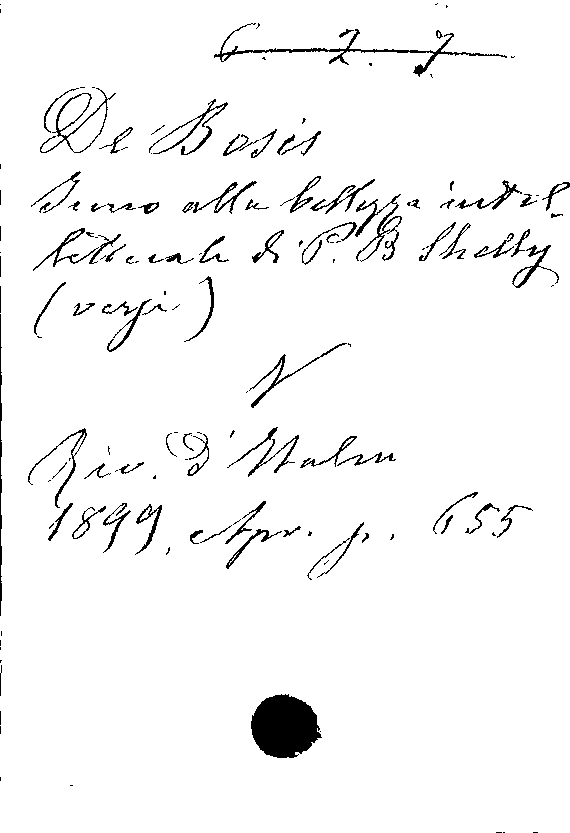 6. 2. 7.
De Bosis
Inno alla bellezza intel-
lettuale di P. B Shelly
(versi)
N
Riv. d'Italia
1899, Apr. p. 655